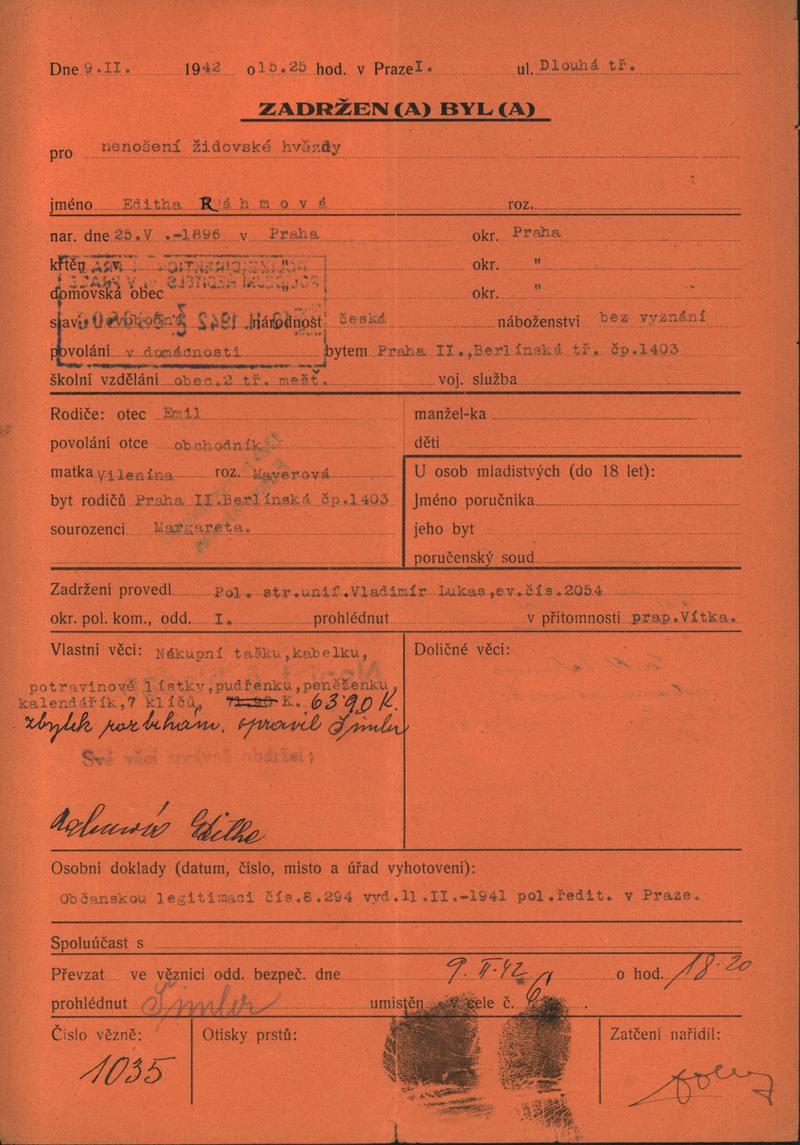 Dne 9.II. 1942 o 15.25 hod. v Praze I. ul. Dlouhá tř.
ZADRŽEN(A) BYL(A)
pro nenošení židovské hvězdy
jméno Editha Ráhmová roz.
nar. dne 25.V .-1896 v Praha okr. Praha
křtěn okr. "
domovská obec okr. "
stav národnost česká náboženství bez vyznání
povolání v domácnosti bytem Praha II.,Berlínská tř. čp.1403
školní vzdělání obec.2 tř. mešť. voj. služba
Rodiče: otec Emil manžel-ka
povolání otce obchodník děti
matka Vilenína roz. Mayerová U osob mladistvých (do 18 let):
byt rodičů Praha II.Berlínská čp.1403 Jméno poručníka
sourozenci Margareta. jeho byt
poručenský soud
Zadržení provedl Pol. str.unif.Vladimír Lukas,ev.čís.2054
okr. pol. kom., odd. I. prohlédnut v přítomnosti prap.Vítka.
Vlastní věci: Nákupní tašku,kabelku, Doličné věci:
potravinové lístky,pudřenku,peněženku,
kalendářík,7 klíčů, K. 63'90 K.
zbytek Šimler
Své věci správně obdržel:
Editha
Osobní doklady (datum, číslo, místo a úřad vyhotovení):
Občanskou legitimaci čís.8.294 vyd.11.II.-1941 pol.ředit. v Praze.
Spoluúčast s
Převzat ve věznici odd. bezpeč. dne 9. II. 42 o hod. 18.20
prohlédnut Šimler umístěn v cele č. 6 .
Číslo vězně: Otisky prstů: Zatčení nařídil:
1035